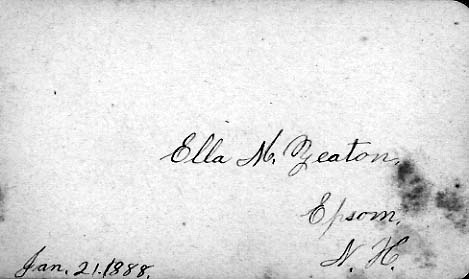 Ella M. Yeaton,
Epsom,
N. H.
Jan. 21. 1888.